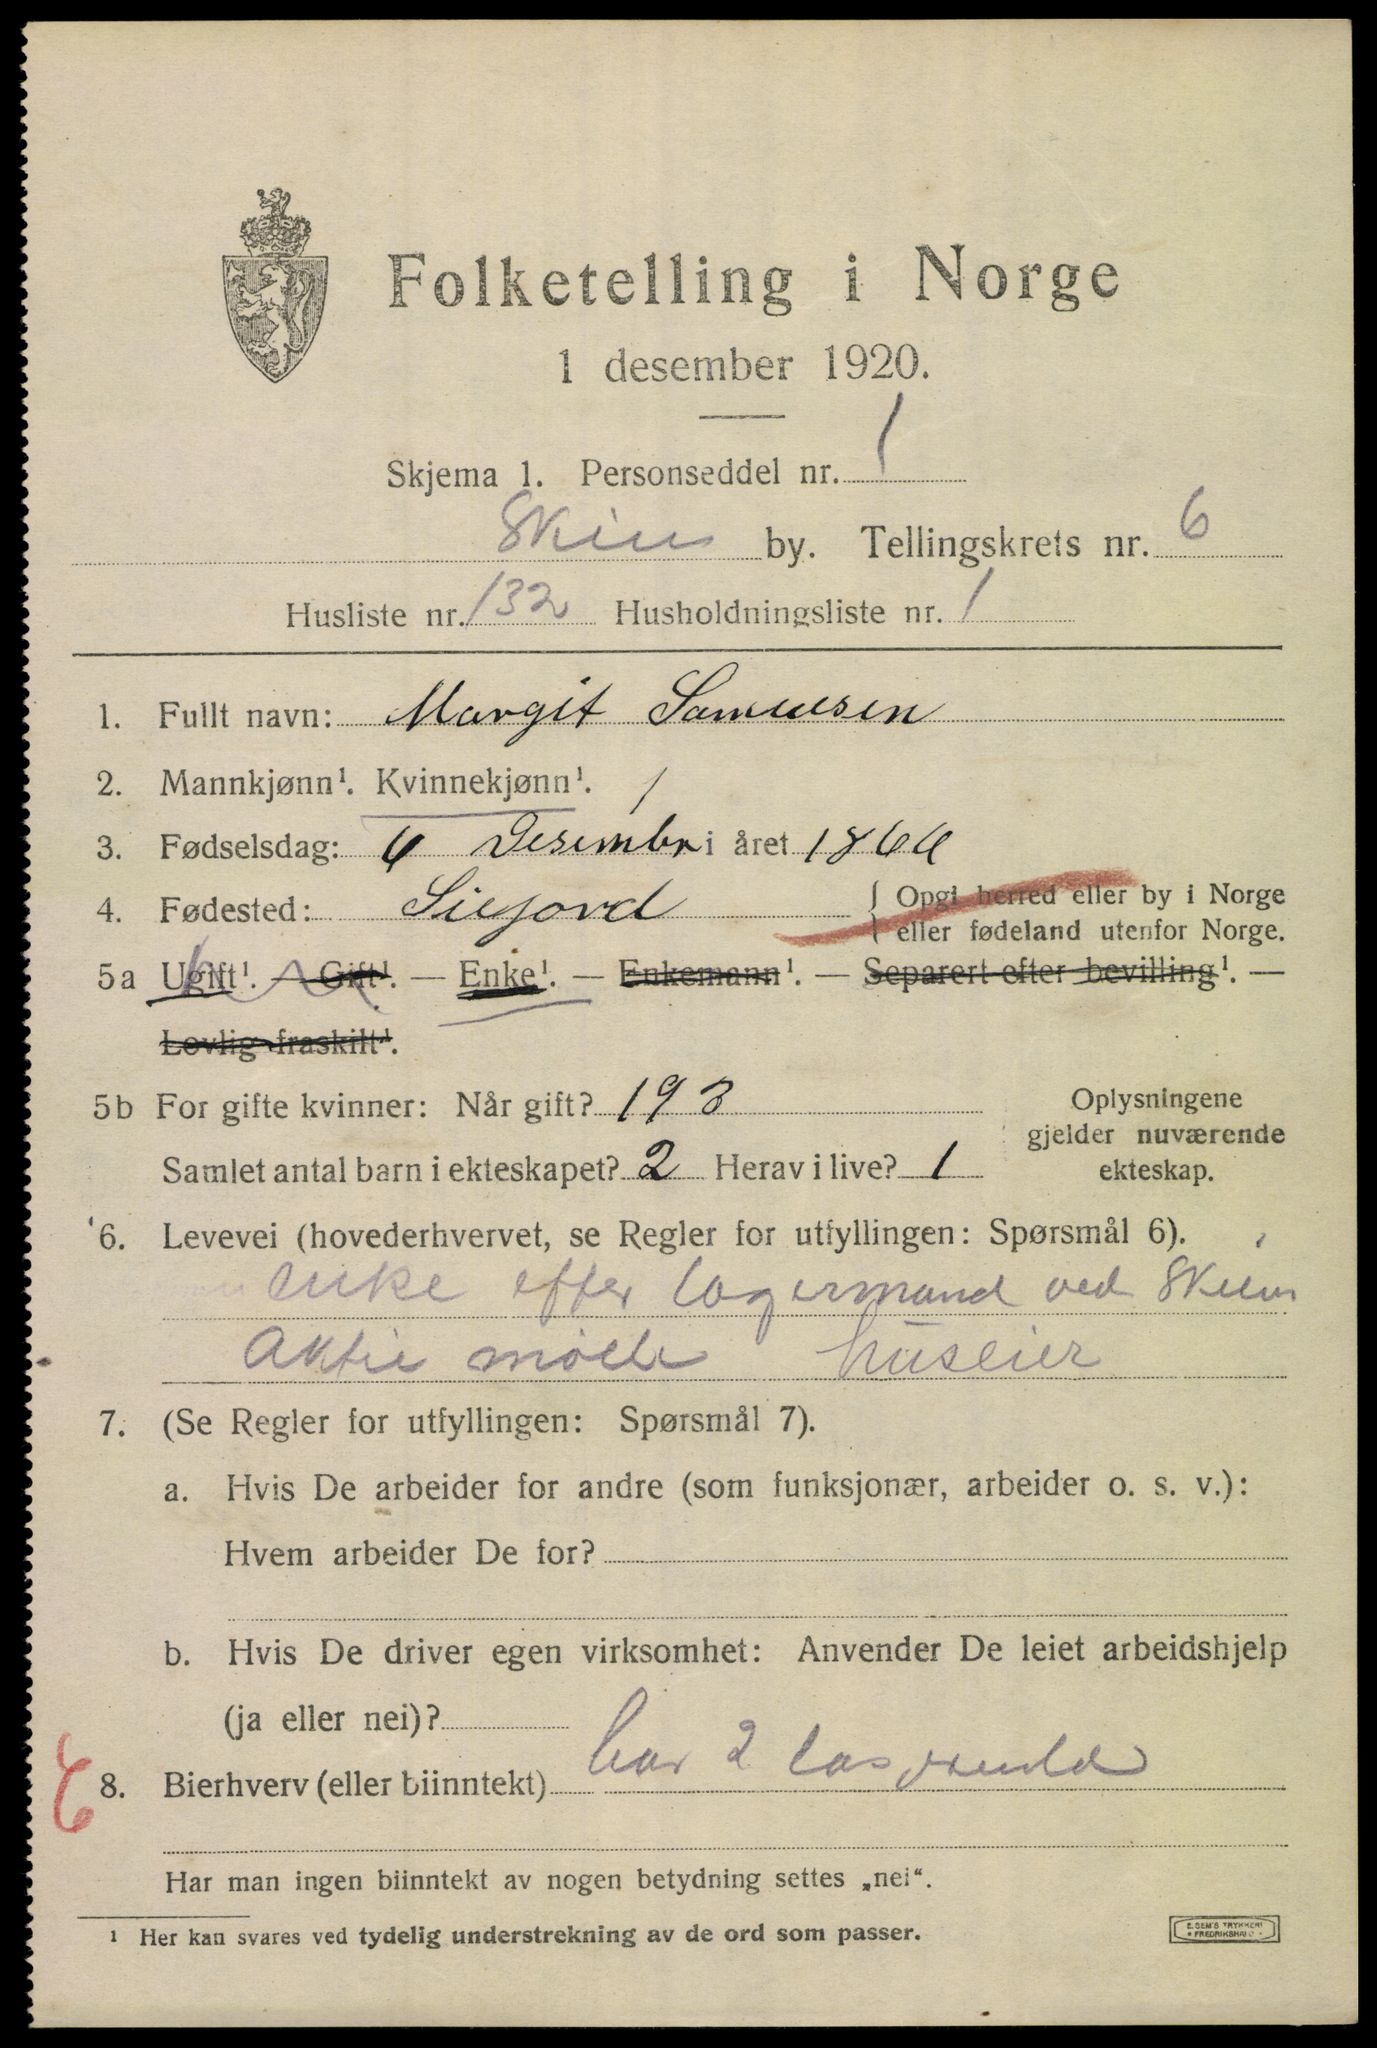 Folketelling i Norge
1 desember 1920.
Skjema 1. Personseddel nr. 1
Skien by. Tellingskrets nr. 6
Husliste nr. 132 Husholdningsliste nr. 1
1. Fullt navn: Margit Samuesen
2. Mannkjønn¹. Kvinnekjønn¹.
3. Fødselsdag: 6 Desembr i året 186
4. Fødested: { Opgi herred eller by i Norge
{ eller fødeland utenfor Norge.
5a Ugift¹. — Gift¹. — Enke¹. — Enkemann¹. — Separert efter bevilling¹. —
Lovlig fraskilt¹.
5b For gifte kvinner: Når gift? 193
Oplysningene
gjelder nuværende
ekteskap.
Samlet antal barn i ekteskapet? 2 Herav i live? 1
6. Levevei (hovederhvervet, se Regler for utfyllingen: Spørsmål 6).
enke efter lagermand ved Skiens
Aktie mölle huseier
7. (Se Regler for utfyllingen: Spørsmål 7).
a. Hvis De arbeider for andre (som funksjonær, arbeider o. s. v.):
Hvem arbeider De for?
b. Hvis De driver egen virksomhet: Anvender De leiet arbeidshjelp
(ja eller nei)?
8. Bierhverv (eller biinntekt) har 2
Har man ingen biinntekt av nogen betydning settes „nei“.
¹ Her kan svares ved tydelig understrekning av de ord som passer.
E. SEM'S TRYKKERI
FREDRIKSHALD